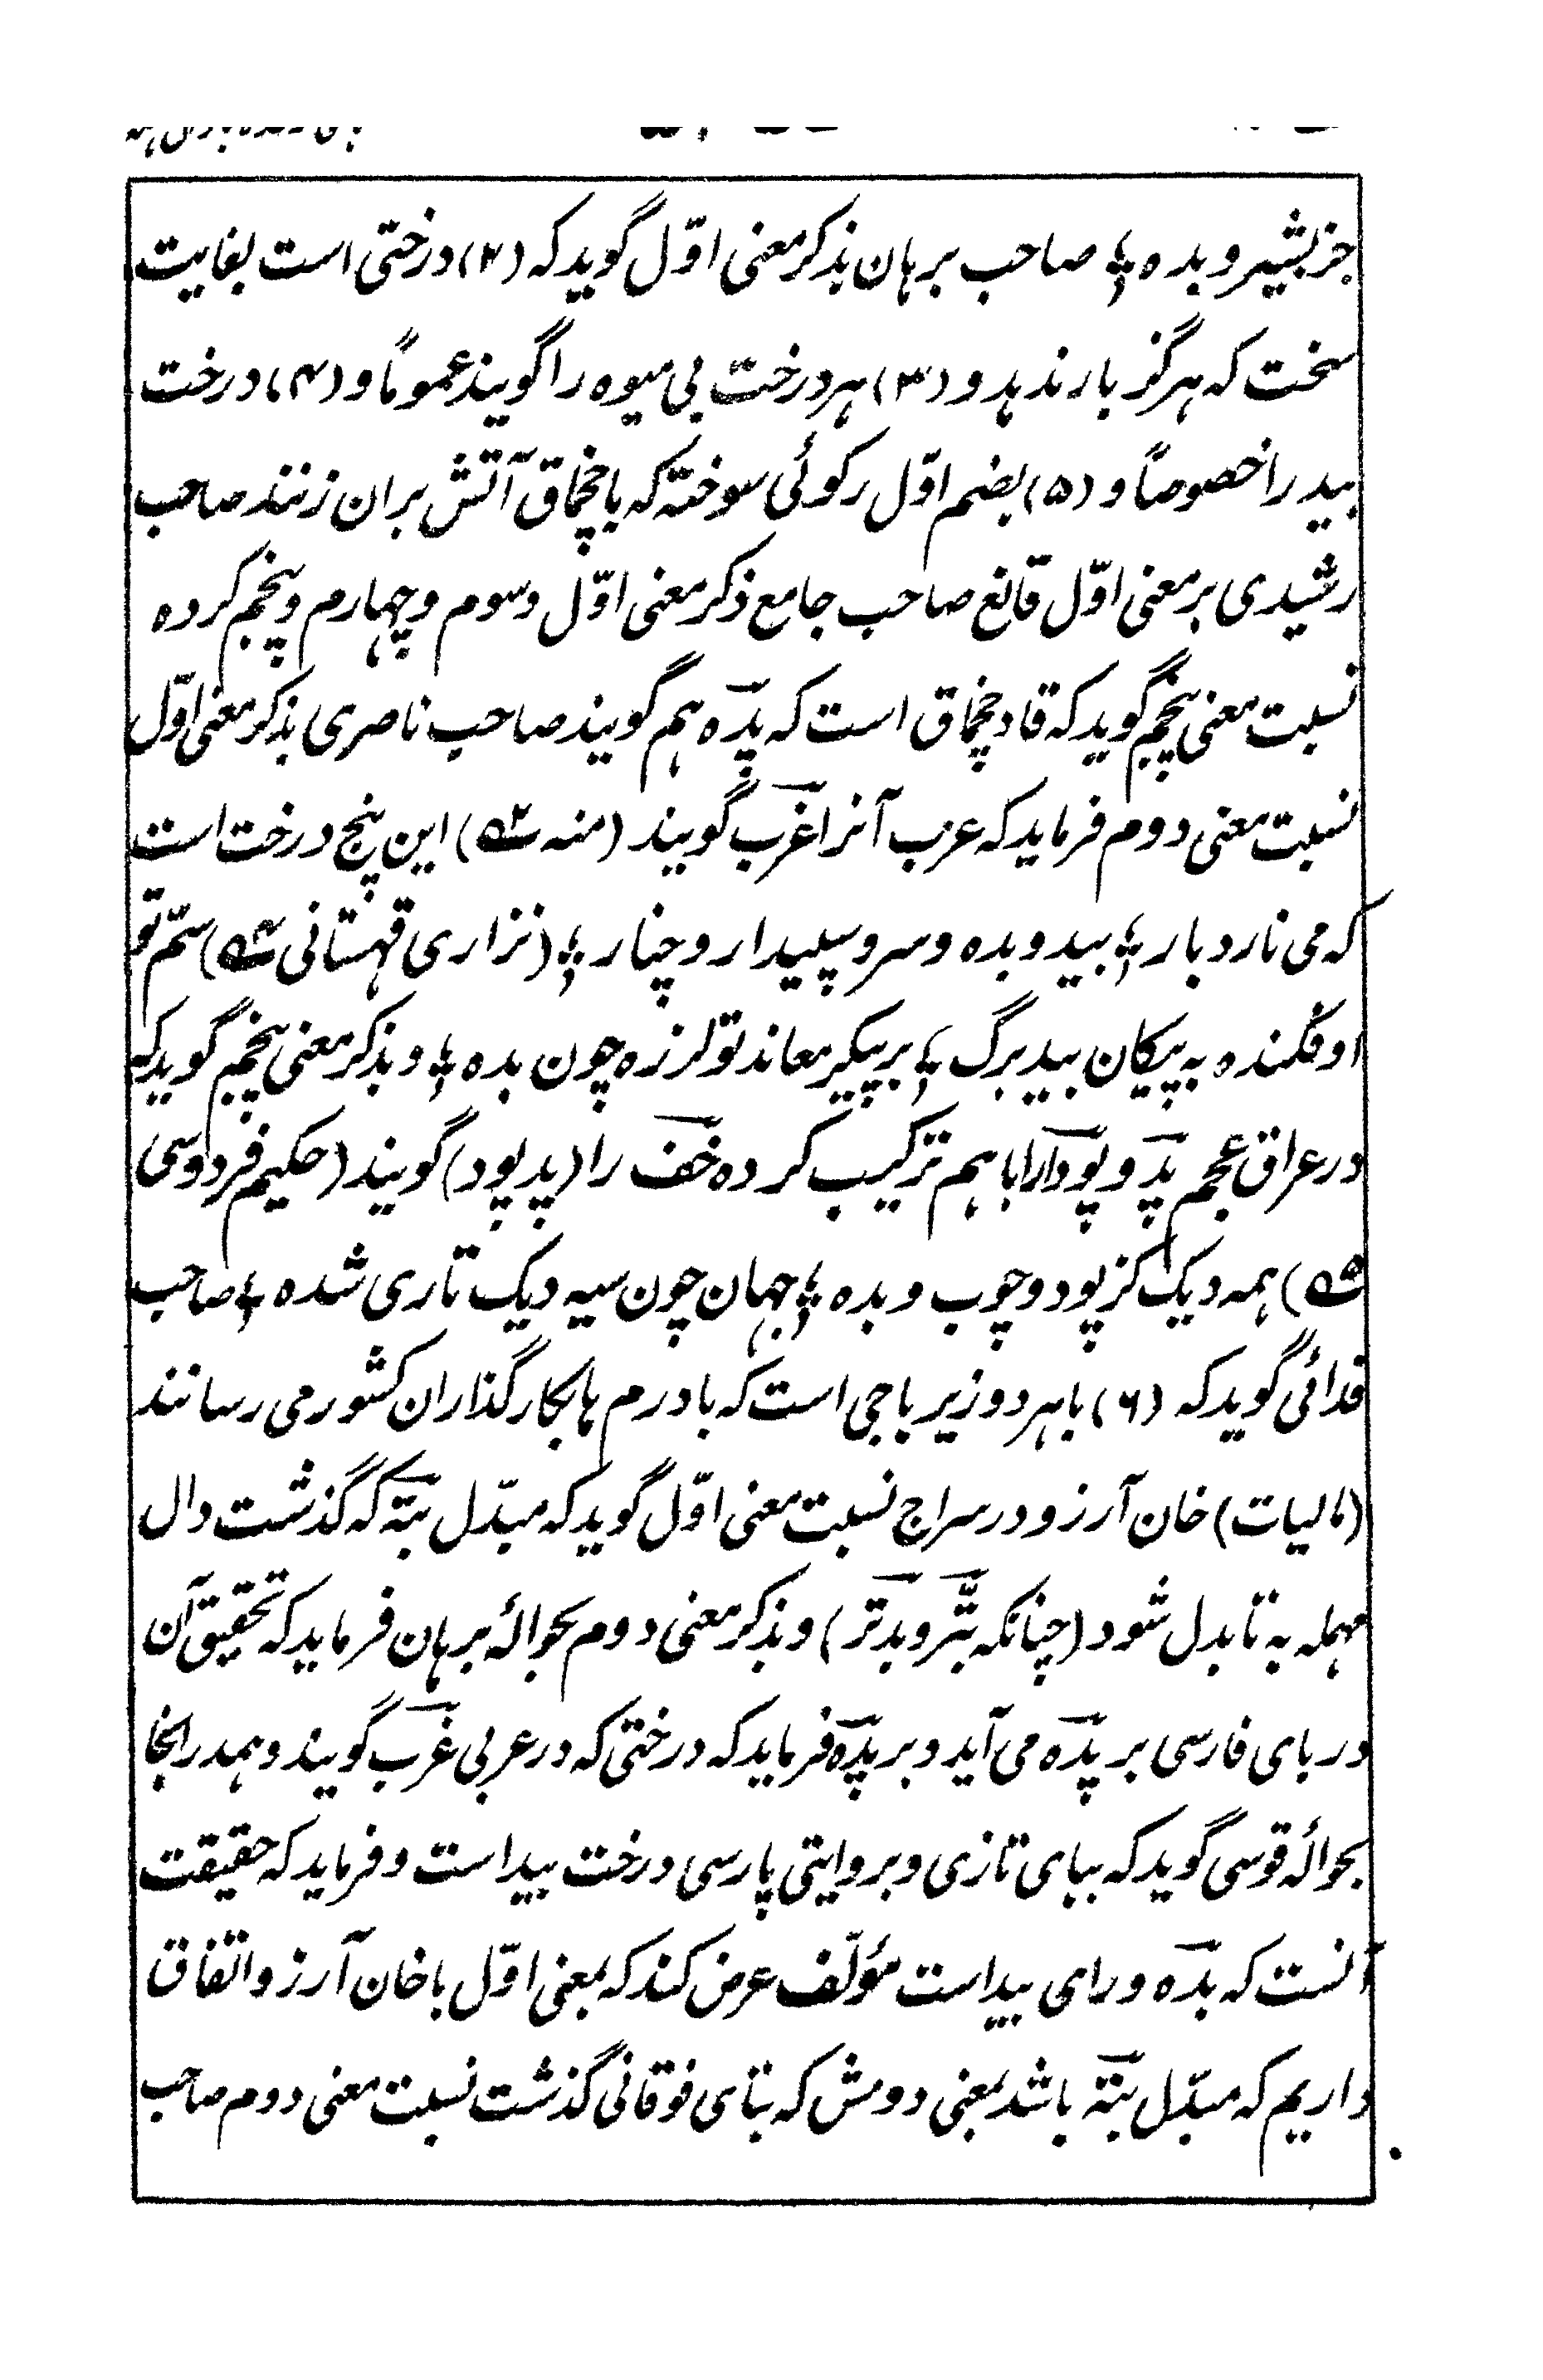 جز بشیر و بده ؛؛ صاحب برهان بذکر معنی اوّل گوید که (۲) درختی است بغایت
سخت که هرگز بار ندهد و (۳) هر درخت بی میوه را گویند عموماً و (۴) درخت
بید را خصوصاً و (۵) بضم اوّل رکوئی سوخته که با چخماق آتش بران زنند صاحب
رشیدی بر معنی اوّل قانع صاحب جامع ذکر معنی اوّل و سوم و چهارم و پنجم کرده
نسبت معنی پنجم گوید که قاد چخماق است که پدَه هم گویند صاحب ناصری بذکر معنی اوّل
نسبت معنی دوم فرماید که عرب آنرا غَرَب گویند (منه ۵۲) این پنج درخت است
که می نارد بار ؛؛ بید و بده و سرو سپیدار و چنار ؛؛ (نزاری قهستانی ۵۳) سَمّ تو
اوفکنده به پیکان بید برگ ؛؛ بر پیکر معاند تو لرزه چون بده ؛؛ و بذکر معنی پنجم گوید که
در عراق عجم پدَ و پود را با هم ترکیب کرده خَف را (پد پود) گویند (حکیم فردوسی
۵) همه دیگ کز پود و چوب و بده ؛؛ جهان چون سیه دیگ تاری شده ؛؛ صاحب
فدائی گوید که (۶) با هر دو زیر باجی است که با درم ها بکار گذاران کشور می رسانند
(مالیات) خان آرزو در سراج نسبت معنی اوّل گوید که مبدّل بَتَه که گذشت دال
مهمله به تا بدل شود (چنانکه بَتَّر و بدَتر) و بذکر معنی دوم بحوالهٔ برهان فرماید که تحقیق آن
در بای فارسی بر پدَه می آید و بر پدَه فرماید که درختی که در عربی غَرَب گویند و همدرانجا
بحوالهٔ قوسی گوید که ببای تازی و بروایتی پارسی درخت بید است و فرماید که حقیقت
آنست که بدَه ورای بید است مؤلّف عرض کند که بمعنی اوّل با خان آرزو اتفاق
داریم که مبدّل بَتَه باشد بمعنی دومش که بتای فوقانی گذشت نسبت معنی دوم صاحب